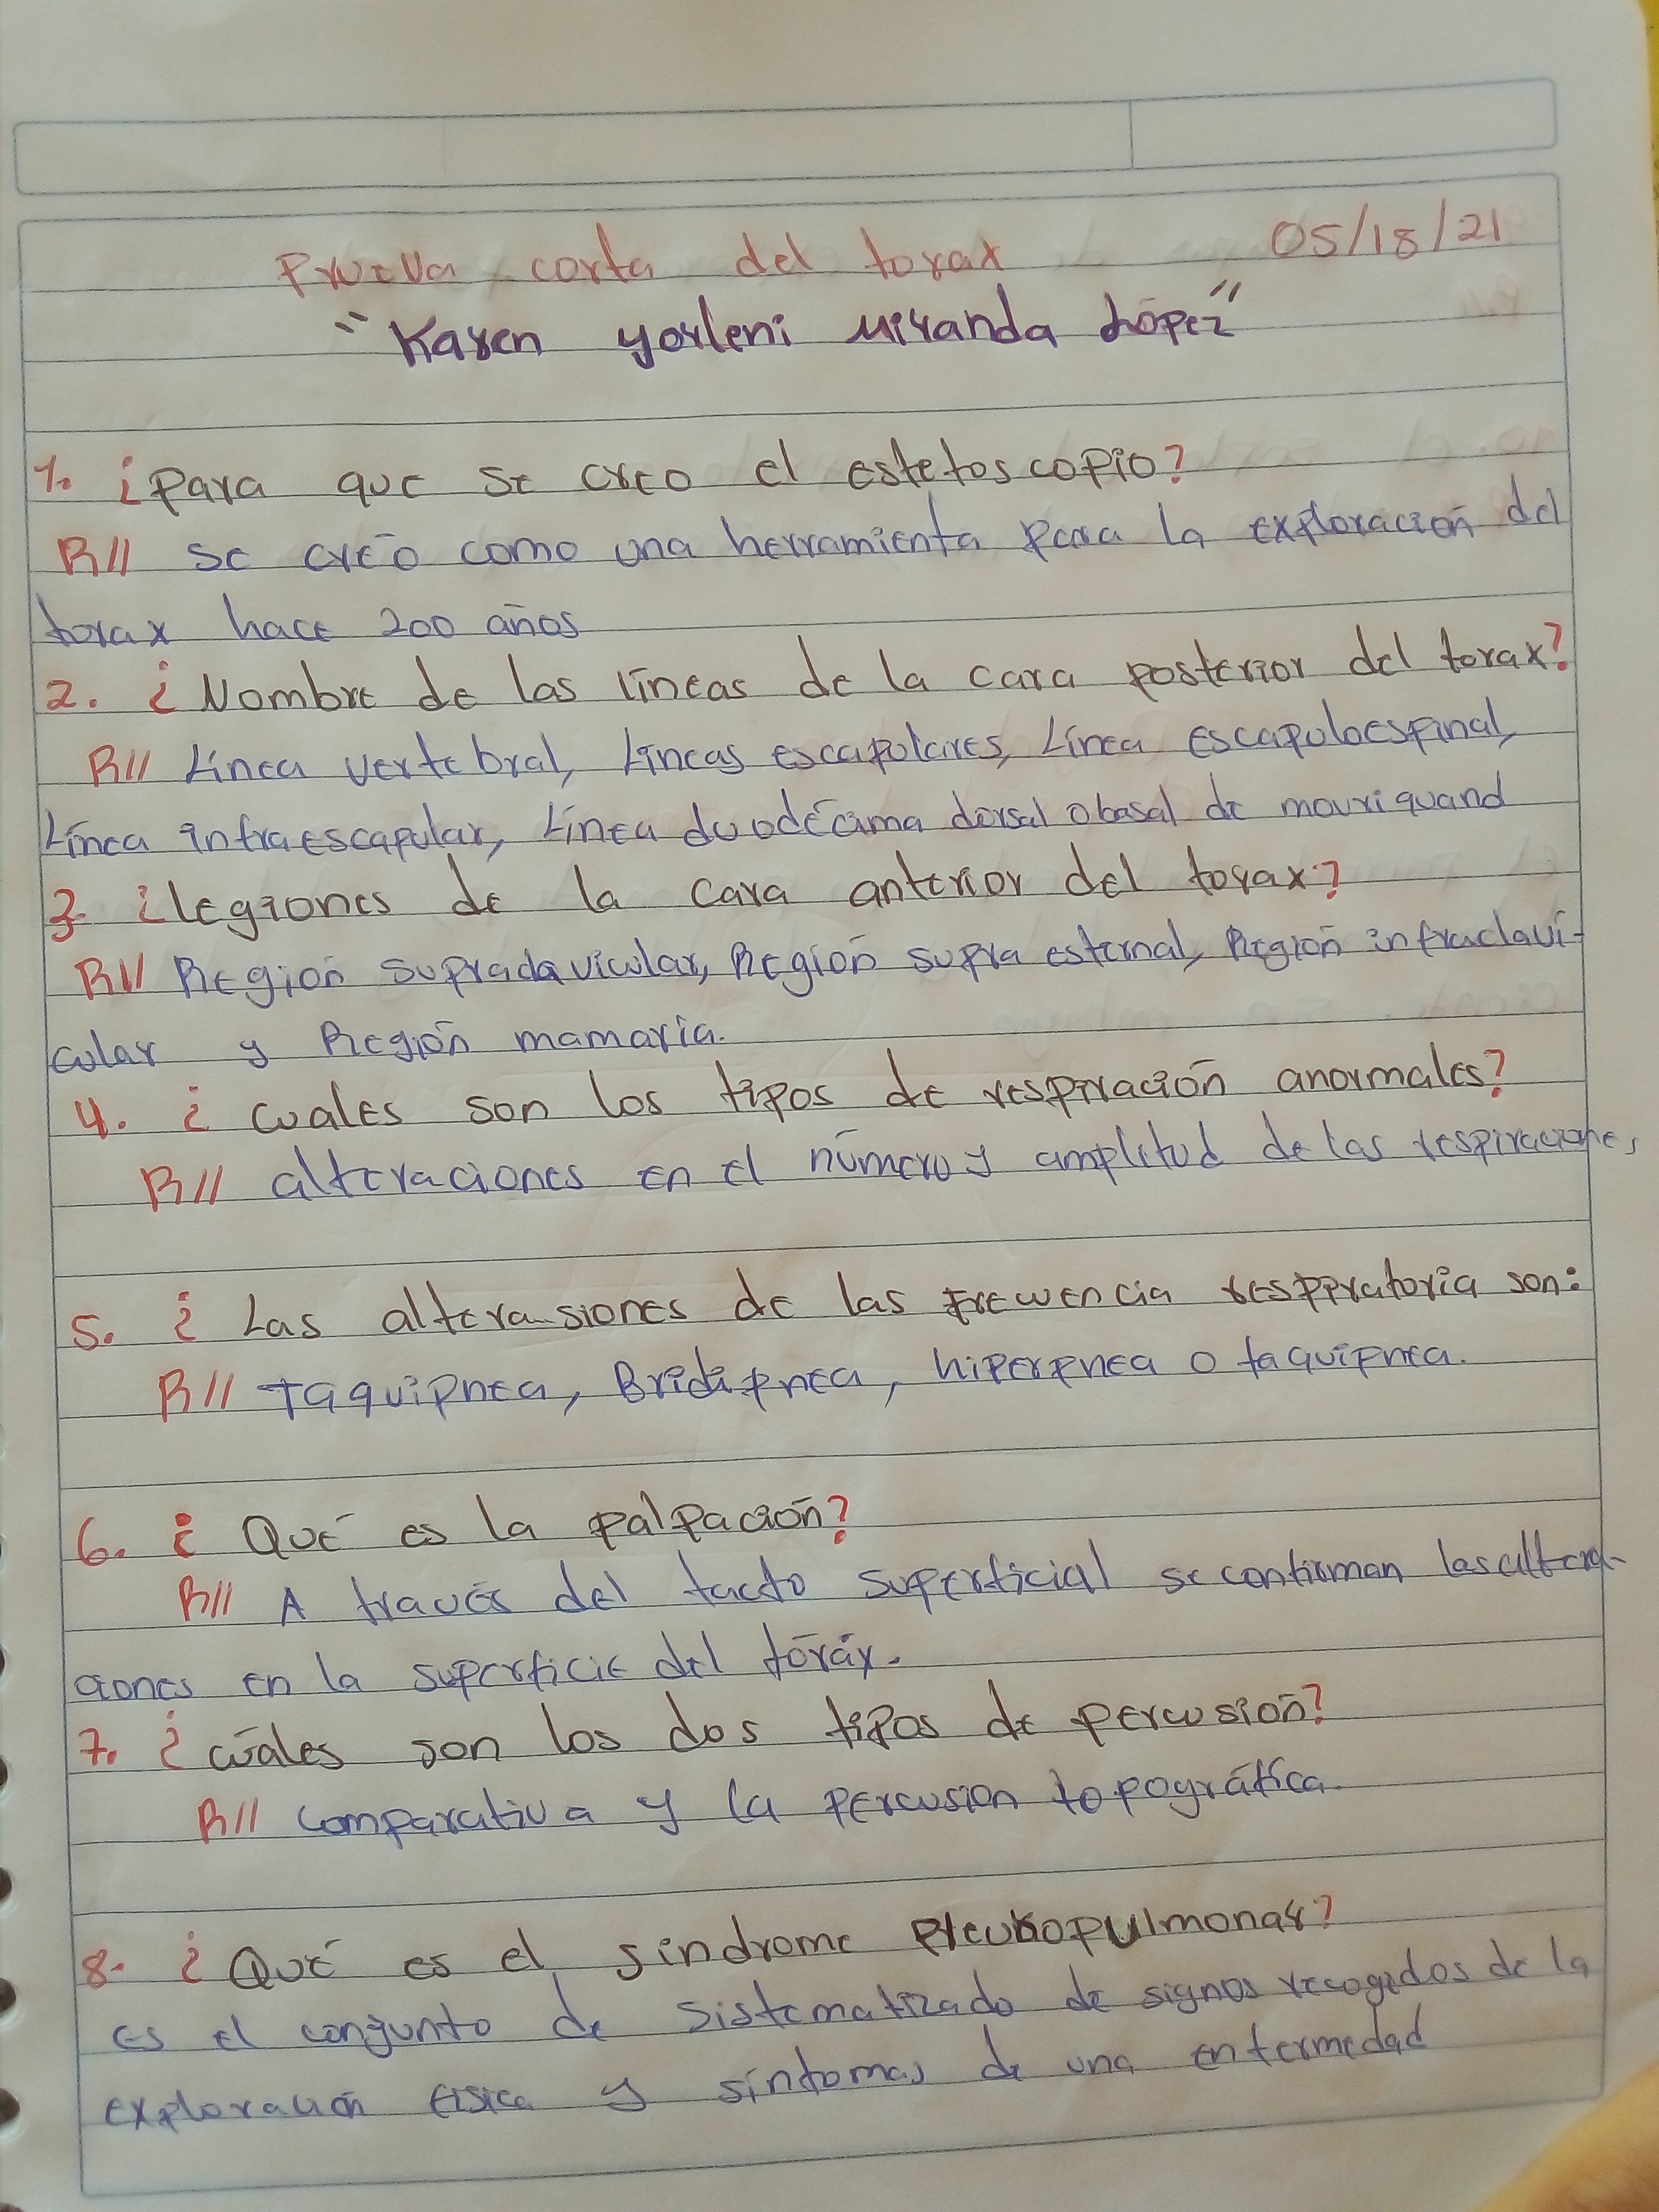 Prueva corta del torax 05/18/21
"Karen yorleni Miranda López"
1. ¿Para que se creo el estetoscopio?
R// se creó como una herramienta para la exploración del
torax hace 200 años
2. ¿Nombre de las líneas de la cara posterior del torax?
R// Línea vertebral, Líneas escapulares, Línea escapuloespinal,
Línea infraescapular, Línea duodécima dorsal o basal de mouriquand
3. ¿legiones de la cara anterior del torax?
R// Región supraclavicular, Región supra esternal, Región infraclavi-
cular y Región mamaria.
4. ¿cuales son los tipos de respiración anormales?
R// alteraciones en el número y amplitud de las respiraciones
5. ¿Las alterasiones de las frecuencia respiratoria son:
R// taquipnea, Bridipnea, hiperpnea o taquipnea.
6. ¿Qué es la palpación?
R// A través del tacto superficial se confirman las altera-
ciones en la superficie del tóráx.
7. ¿cuáles son los dos tipos de percusión?
R// comparativa y la percusión topográfica.
8. ¿Qué es el sindrome pleuropulmonar?
es el conjunto de sistematizado de signos recogidos de la
exploración física y síntomas de una enfermedad